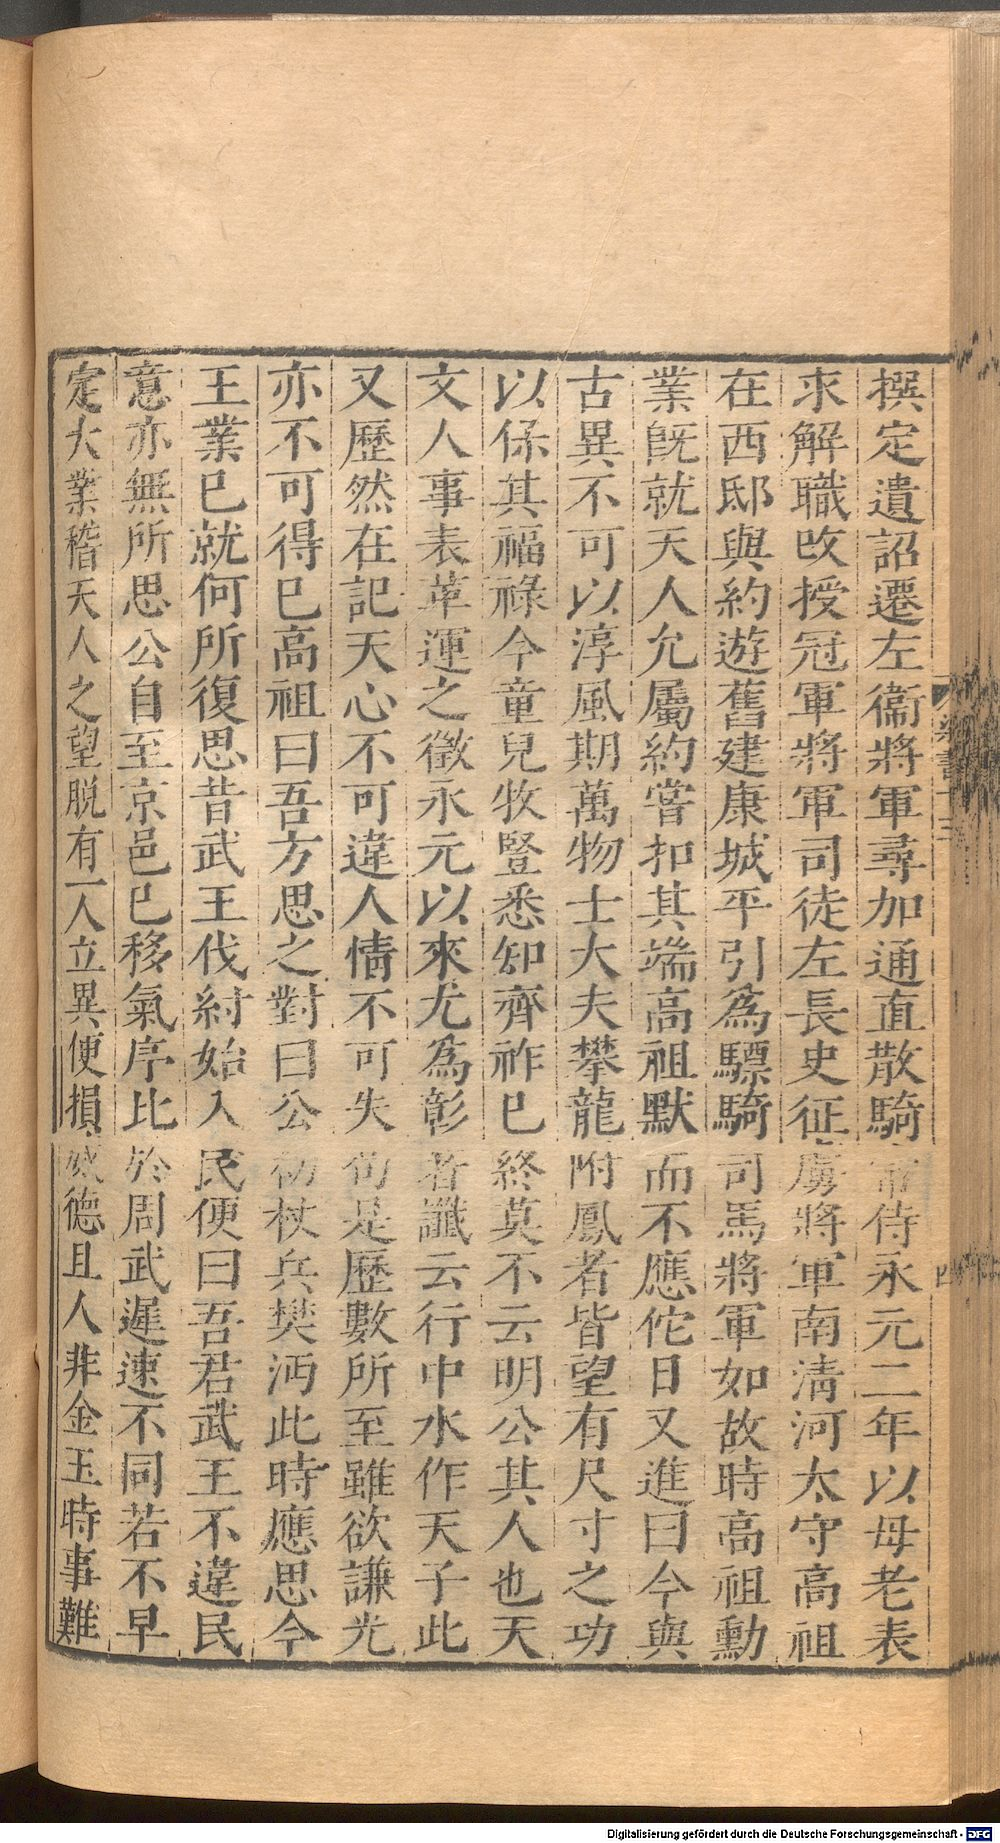 撰定遺詔遷左衞將軍尋加通直散騎常侍永元二年以母老表
求解職改授冠軍將軍司徒左長史征虜將軍南淸河太守高祖
在西邸與約遊舊建康城平引爲驃騎司馬將軍如故時高祖勳
業旣就天人允屬約嘗扣其端高祖默而不應佗日又進曰今與
古異不可以淳風期萬物士大夫攀龍附鳳者皆望有尺寸之功
以保其福祿今童兒牧豎悉知齊祚已終莫不云明公其人也天
文人事表革運之徵永元以來尤爲彰著讖云行中水作天子此
又歷然在記天心不可違人情不可失苟是歷數所至雖欲謙光
亦不可得已高祖曰吾方思之對曰公初杖兵樊沔此時應思今
王業已就何所復思昔武王伐紂始入民便曰吾君武王不違民
意亦無所思公自至京邑已移氣序比於周武遲速不同若不早
定大業稽天人之望脫有一人立異便損威德且人非金玉時事難
Digitalisierung gefördert durch die Deutsche Forschungsgemeinschaft - DFG